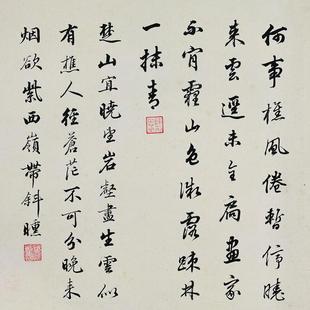 何事樵風倦暫停曉
來雲邏未全扃畫家
不肯霾山色微露疎林
一抹青
楚山宜曉望岩壑盡生雲似
有樵人徑蒼茫不可分晚來
烟欲紫西嶺帶斜曛